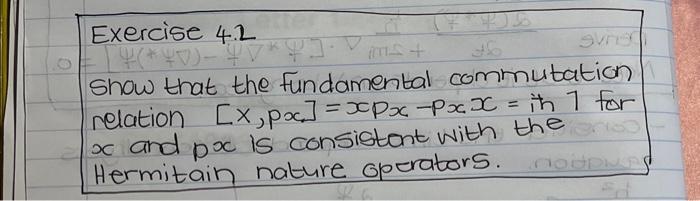 Exercise 4.2
show that the fundamental commutation
relation [x,px] = xpx - pxx = iħ 1 for
x and px is consistent with the
Hermitain nature operators.